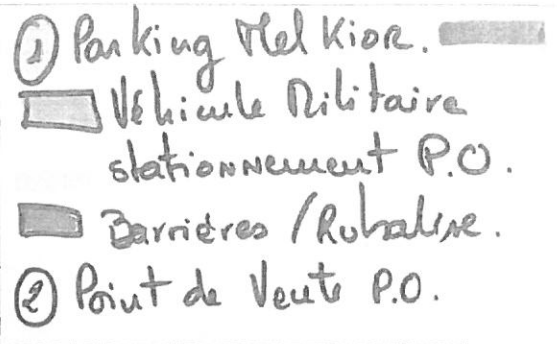 ① Parking Melkior.
Véhicule Militaire
stationnement P.O.
Barrières / Rubalise.
② Point de Vente P.O.